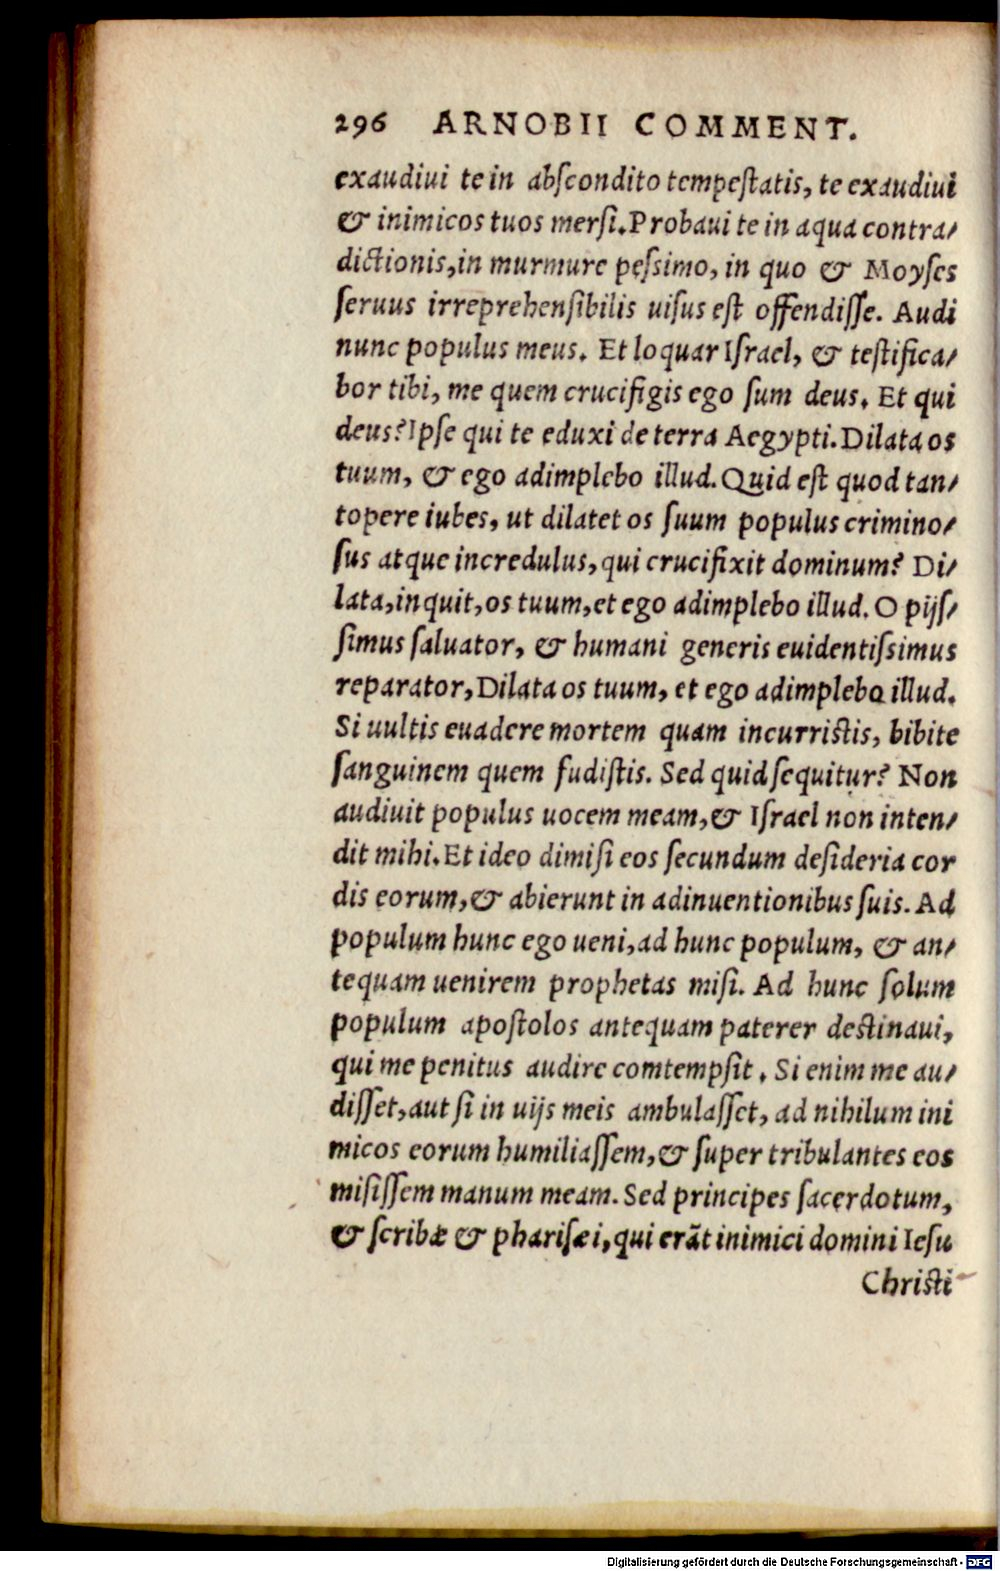 296 ARNOBII COMMENT.
exaudiui te in abſcondito tempeſtatis, te exaudiui
& inimicos tuos merſi. Probaui te in aqua contra/
dictionis, in murmure peſsimo, in quo & Moyſes
ſeruus irreprehenſibilis uiſus eſt offendiſſe. Audi
nunc populus meus. Et loquar Iſrael, & teſtifica/
bor tibi, me quem crucifigis ego ſum deus. Et qui
deus? Ipſe qui te eduxi de terra Aegypti. Dilata os
tuum, & ego adimplebo illud. Quid eſt quod tan/
topere iubes, ut dilatet os ſuum populus crimino/
ſus atque incredulus, qui crucifixit dominum? Di/
lata, inquit, os tuum, et ego adimplebo illud. O pijſ/
ſimus ſaluator, & humani generis euidentiſsimus
reparator, Dilata os tuum, et ego adimplebo illud.
Si uultis euadere mortem quam incurriſtis, bibite
ſanguinem quem fudiſtis. Sed quid ſequitur? Non
audiuit populus uocem meam, & Iſrael non inten/
dit mihi. Et ideo dimiſi eos ſecundum deſideria cor
dis eorum, & abierunt in adinuentionibus ſuis. Ad
populum hunc ego ueni, ad hunc populum, & an/
tequam uenirem prophetas miſi. Ad hunc ſolum
populum apoſtolos antequam paterer deſtinaui,
qui me penitus audire comtempſit. Si enim me au/
diſſet, aut ſi in uijs meis ambulaſſet, ad nihilum ini
micos eorum humiliaſſem, & ſuper tribulantes eos
miſiſſem manum meam. Sed principes ſacerdotum,
& ſcribæ & phariſæi, qui erãt inimici domini Ieſu
Chriſti
Digitalisierung gefördert durch die Deutsche Forschungsgemeinschaft - DFG